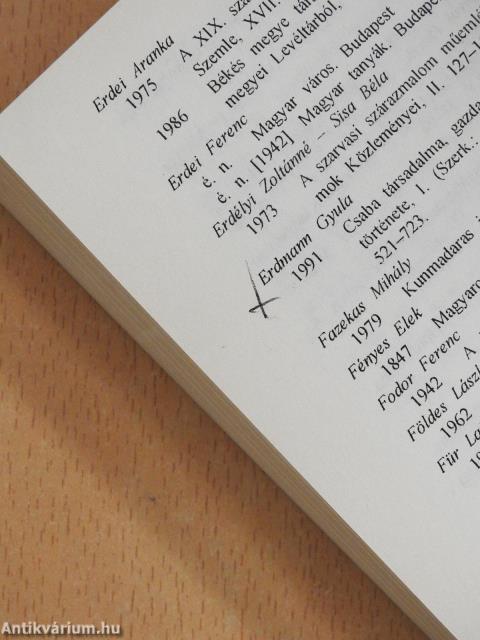 Erdei Aranka
1975 A XIX. szá
Szemle, XVII.
1986 Békés megye
megyei Levéltárból,
Erdei Ferenc
é. n. Magyar város. Budapest
é. n. [1942] Magyar tanyák. Budape
Erdélyi Zoltánné – Sisa Béla
1973 A szarvasi szárazmalom műeml
mok Közleményei, II. 127–1
Erdmann Gyula
1991 Csaba társadalma, gazda
története, I. (Szerk.:
521–723.
Fazekas Mihály
1979 Kunmadaras
Fényes Elek
1847 Magyaro
Fodor Ferenc
1942 A
Földes Lászl
1962
Für La
Antikvárium.hu